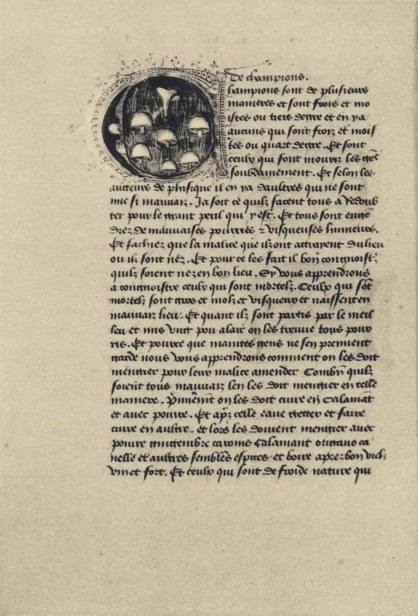 De champions.
hampions sont de plusieurs
manieres et sont frois et mo
istes ou tiers degre et en ya
aucuns qui sont froiz et mois
tes ou quart degre. Et sont
ceulx qui font mourir les gens
soubdainement. Et selon les
aucteurs de phisique il en ya daultres qui ne sont
mie si mauuaiz. Ja soit ce quilz facent tous a redoub
ter pour le grant peril qui y est. Et tous sont engē
drez de mauuaises pourretez visqueuses humeurs.
Et sachiez que la malice que ilz ont attrayent du lieu
ou ilz sont nez. Et pour ce les fait il bon congnoistre
quilz soient nez en bon lieu. Sy vous apprendrons
a congnoistre ceulx qui sont mortelz. Ceulx qui sōt
mortelz sont gros et molz et visqueux et naissent en
mauuaiz lieu. Et quant ilz sont partis par le meil
leu et mis vng pou alair on les treuue tous pour
ris. Et pource que maintes gens ne sen prennent
garde nous vous apprendrons comment on les doit
mengier pour leur malice amender. Combiē quilz
soient tous mauuaiz len les doit mengier en telle
maniere. on les doit cuire en calamat
et avec pouure. Et celle eaue getter et faire
cuire en aultre. et lors les doiuent mengier auec
pouure gingembre caroins calamant origano ca
nelle et aultres semblēs espices et boire apres bon vielz
vin et fort. Et ceulx qui sont de froide nature qui